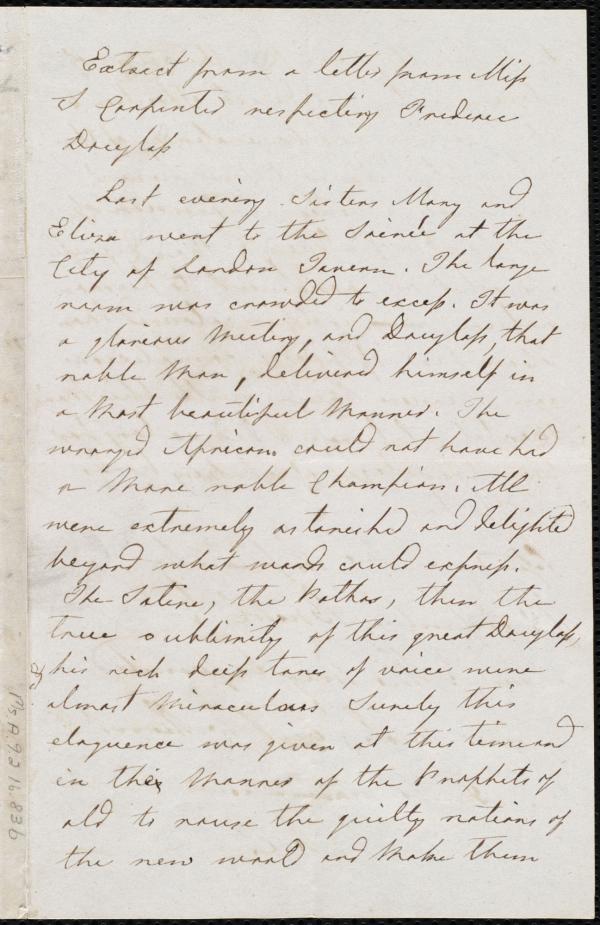 Extract from a letter from Miss
S Carpenter respecting Frederic
Douglass
Last evening Sisters Mary and
Eliza went to the Soireé at the
City of London Tavern. The large
room was crowded to excess. It was
a glorious Meeting, and Douglass, that
noble Man, delivered himself in
a Most beautiful Manner. The
wronged African could not have had
a More noble Champion. All
were extremely astonished and delighted
beyond what words could express.
The Satire, the Pathos, then the
true sublimity of this great Douglass,
& his rich deep tones of voice were
almost Miraculous Surely this
eloquence was given at this time and
in the Manner of the Prophets of
old to rouse the guilty nations of
the new world and Make them
Ms.A.9.2.16.83b